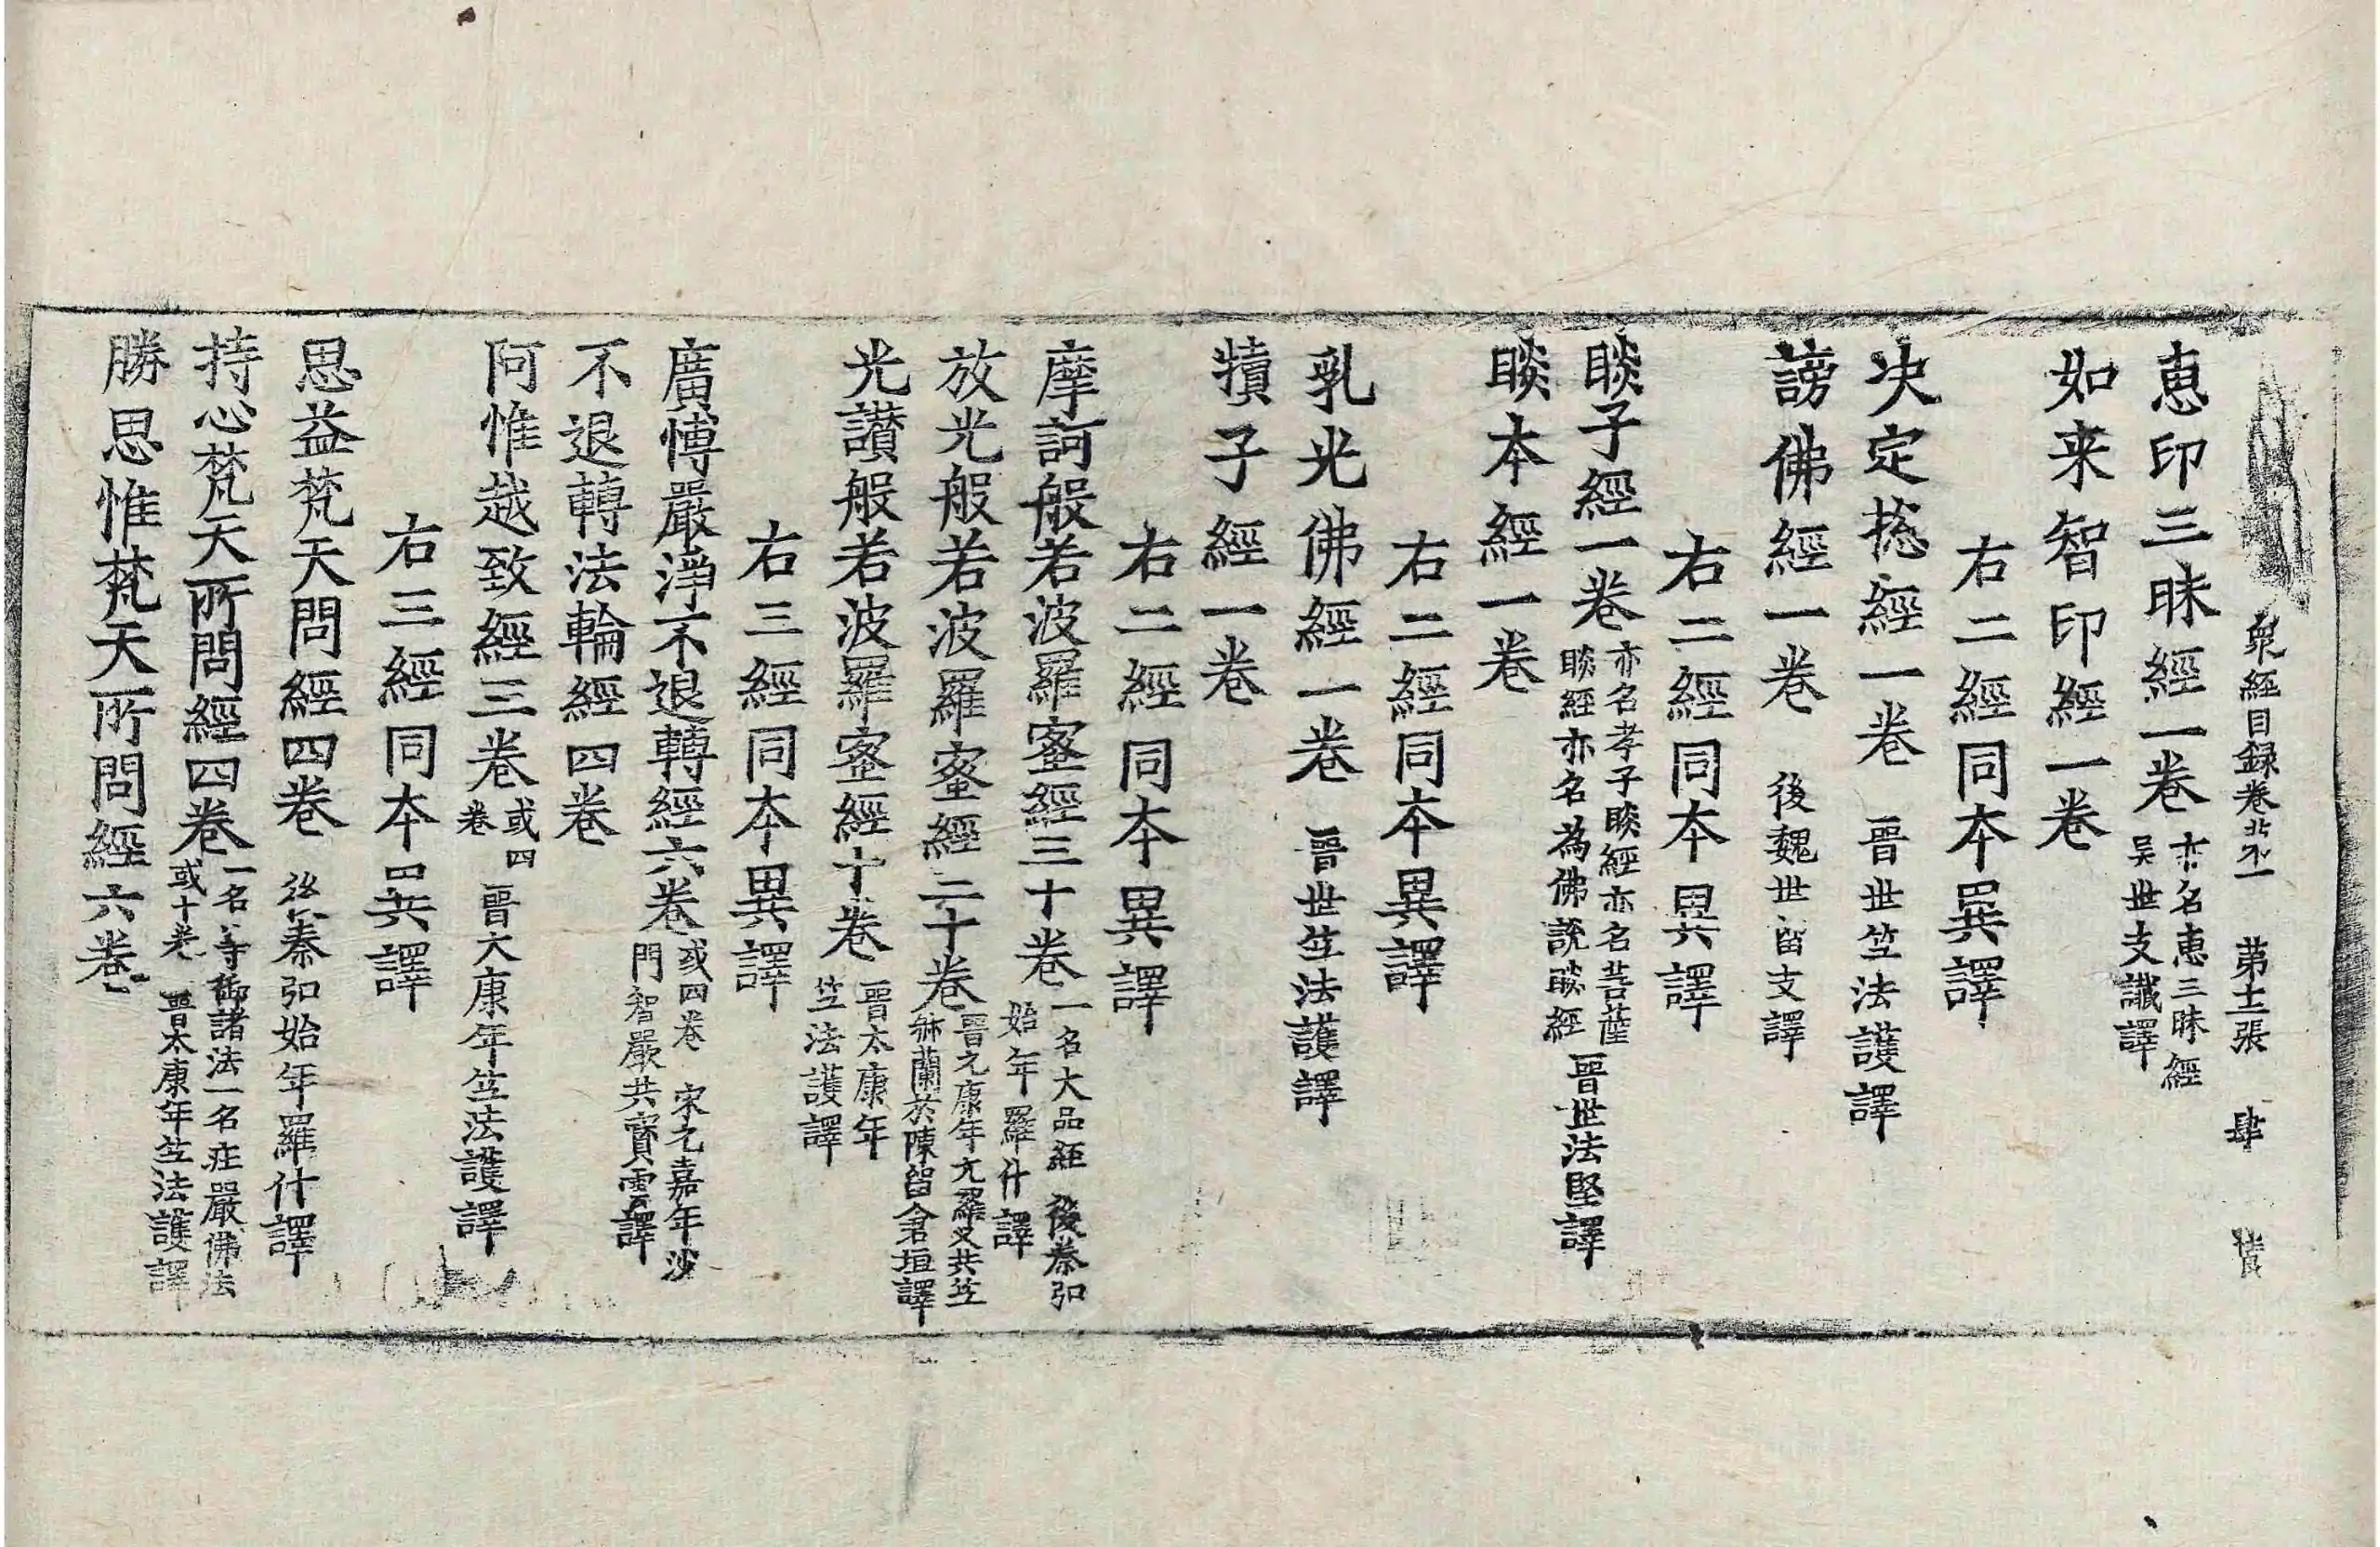 衆經目録卷 第十二張 肆
恵印三昧經一卷 亦名惠三昧經 吴世支讖譯
如来智印經一卷
右二經同本異譯
决定捴經一卷 晉世竺法護譯
謗佛經一卷 後魏世留支譯
右二經同本異譯
睒子經一卷 亦名孝子睒經亦名菩薩睒經亦名為佛說睒經 晉世法堅譯
睒本經一卷
右二經同本異譯
乳光佛經一卷 晉世竺法護譯
犢子經一卷
右二經同本異譯
摩訶般若波羅蜜經三十卷 一名大品經 後秦弘始年羅什譯
放光般若波羅蜜經二十卷 晉元康年无羅叉共竺𣑽蘭於陳留倉垣譯
光讃般若波羅蜜經十卷 晉太康年竺法護譯
右三經同本異譯
廣博嚴淨不退轉經六卷 或四卷 宋元嘉年沙門智嚴共寳雲譯
不退轉法輪經四卷
阿惟越致經三卷 或四卷 晉大康年竺法護譯
右三經同本異譯
思益梵天問經四卷 後秦弘始年羅什譯
持心梵天所問經四卷 一名等御諸法一名莊嚴佛法或十卷 晉太康年竺法護譯
勝思惟梵天所問經六卷